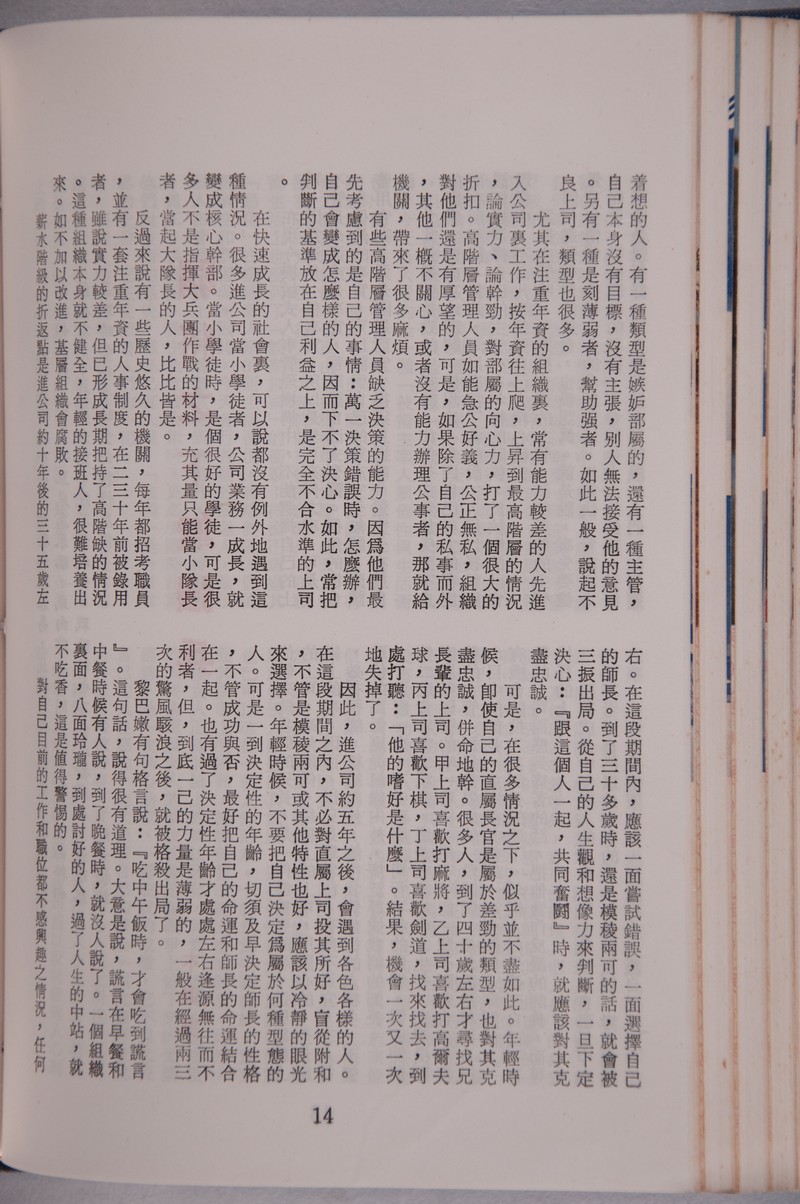 着想的人。有一種類型是嫉妒部屬的，還有一種主管，
自己本身沒有目標，沒有主張，別人無法接受他的意見
。另有一種是刻薄弱者，幫助强者。如此一般，說起不
良上司，類型也很多。
尤其在注重年資的組織裏，常有能力較差的人先進
入公司裏工作，按年資往上爬，上昇到最高階層的情況
，論實力、論幹勁，對部屬的向心力，打了一個很大的
折扣。高階層管理人員如能急公好義，公正無私，組織
對他們還是有厚望的，可是，如果除了自己的私事而外
，其他一概不關心，或者沒有能力辦理公事者，那就給
機關，帶來了很多麻煩。
有些高階層管理人員缺乏決策的能力。因爲他們最
先考慮到的是自己的事情：萬一決策錯誤時，怎麼辦，
自己會變成怎麼樣的人，因而下不了決心。如此，常把
判斷的基準放在自己利益之上，是完全不合水準的上司
。
在快速成長的社會裏，可以說都沒有例外地遇到這
種情況。很多進公司當小學徒者，公司業務一成長，就
變成核心幹部。當小學徒時，是個很好的學徒，可是很
多人不是指揮大兵團作戰的材料，充其量只能當小隊長
者，當起大隊長的人，比比皆是。
反過來說有一些歷史悠久的機關，每年都招考職員
，並有一套注重年資的人事制度，在二三十年前被錄用
者，雖說實力較差，但已形成長期把持了高階缺的情況
。這種組織本身就不健全，年輕的接班人，很難培養出
來。如不加以改進，基層組織會腐敗。
薪水階級的折返點是進公司約十年後的三十五歲左
右。在這段期間內，應該一面嘗試錯誤，一面選擇自己
的師長。到了三十多歲時，還是模稜兩可的話，就會被
三振出局。從自己的人生觀和想像力來判斷，一旦下定
決心：『跟這個人一起，共同奮鬪』時，就應該對其克
盡忠誠。
可是，在很多情況之下，似乎並不盡如此。年輕時
候，卽使自己的直屬長官是屬於差勁的類型，也對其克
盡忠誠，併命地幹。很多人，到了四十歲左右才尋找兄
長輩的上司。甲上司喜歡打麻將，乙上司喜歡打高爾夫
球，丙上司喜歡下棋，丁上司喜歡劍道，找來找去，到
處打聽：「他的嗜好是什麼」。結果，機會一次又一次
地失掉了。
因此，進公司約五年之後，會遇到各色各樣的人。
在這段期間之內，不必對直屬上司投其所好，盲從附和
，不管是模稜兩可或其他特性也好，應該以冷靜的眼光
來選擇。年輕時候，不要把自己決定爲屬於何種型態的
人。可是一到決定性的年齡，切須及早決定師長的性格
，不管成功與否，最好把自己的命運和師長的命運結合
在一起。也有過了決定性年齡才處處左右逢源無往而不
利者，但，到底一己的力量是薄弱的，一般在經過兩三
次的驚風駭浪之後，就被格殺出局了。
黎巴嫩有句格言說：『吃中午飯時，才會吃到謊言
』。這句話，說得很有道理。大意是說，謊言在早餐和
中餐時候有人說，到了晚餐時，就沒人說了。一個組織
裏面，八面玲瓏，到處討好的人，過了人生的中站，就
不吃香，這是值得警惕的。
對自己目前的工作和職位都不感興趣之情況，任何
14